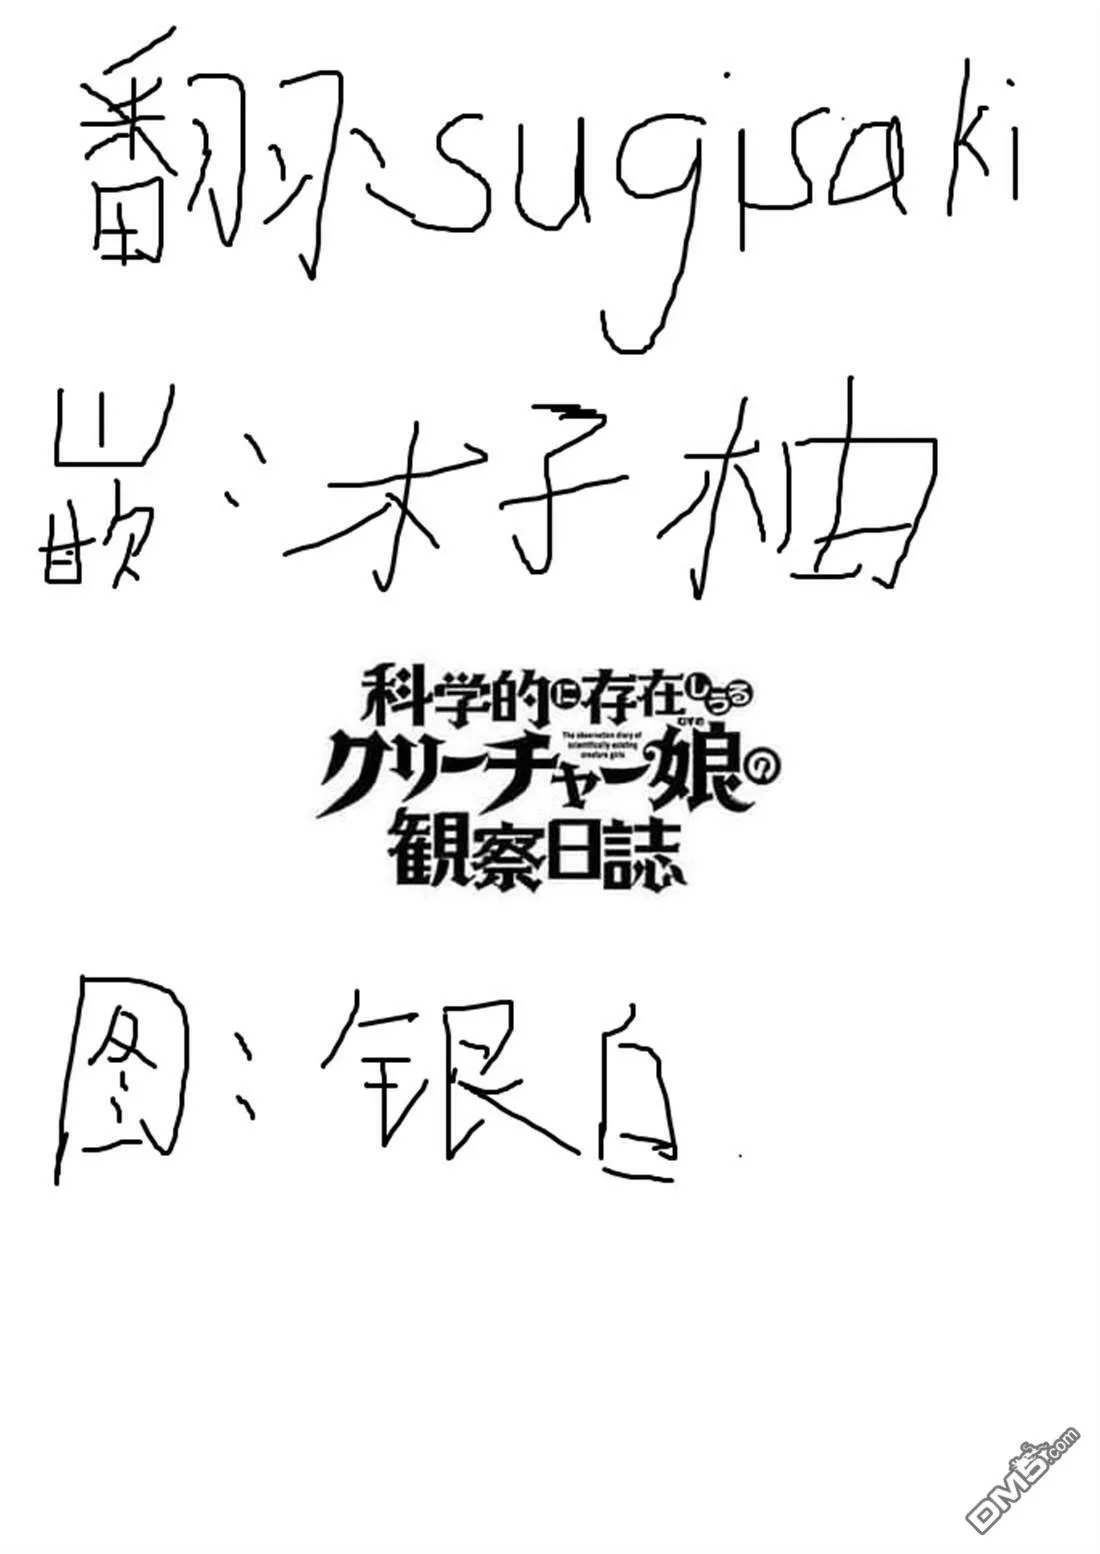 翻:sugisaki
嵌:木子柚
科学的に存在しうる
クリーチャー娘の
むすめ
The observation diary of
scientifically existing
creature girls
観察日誌
图:银白
DM5.com